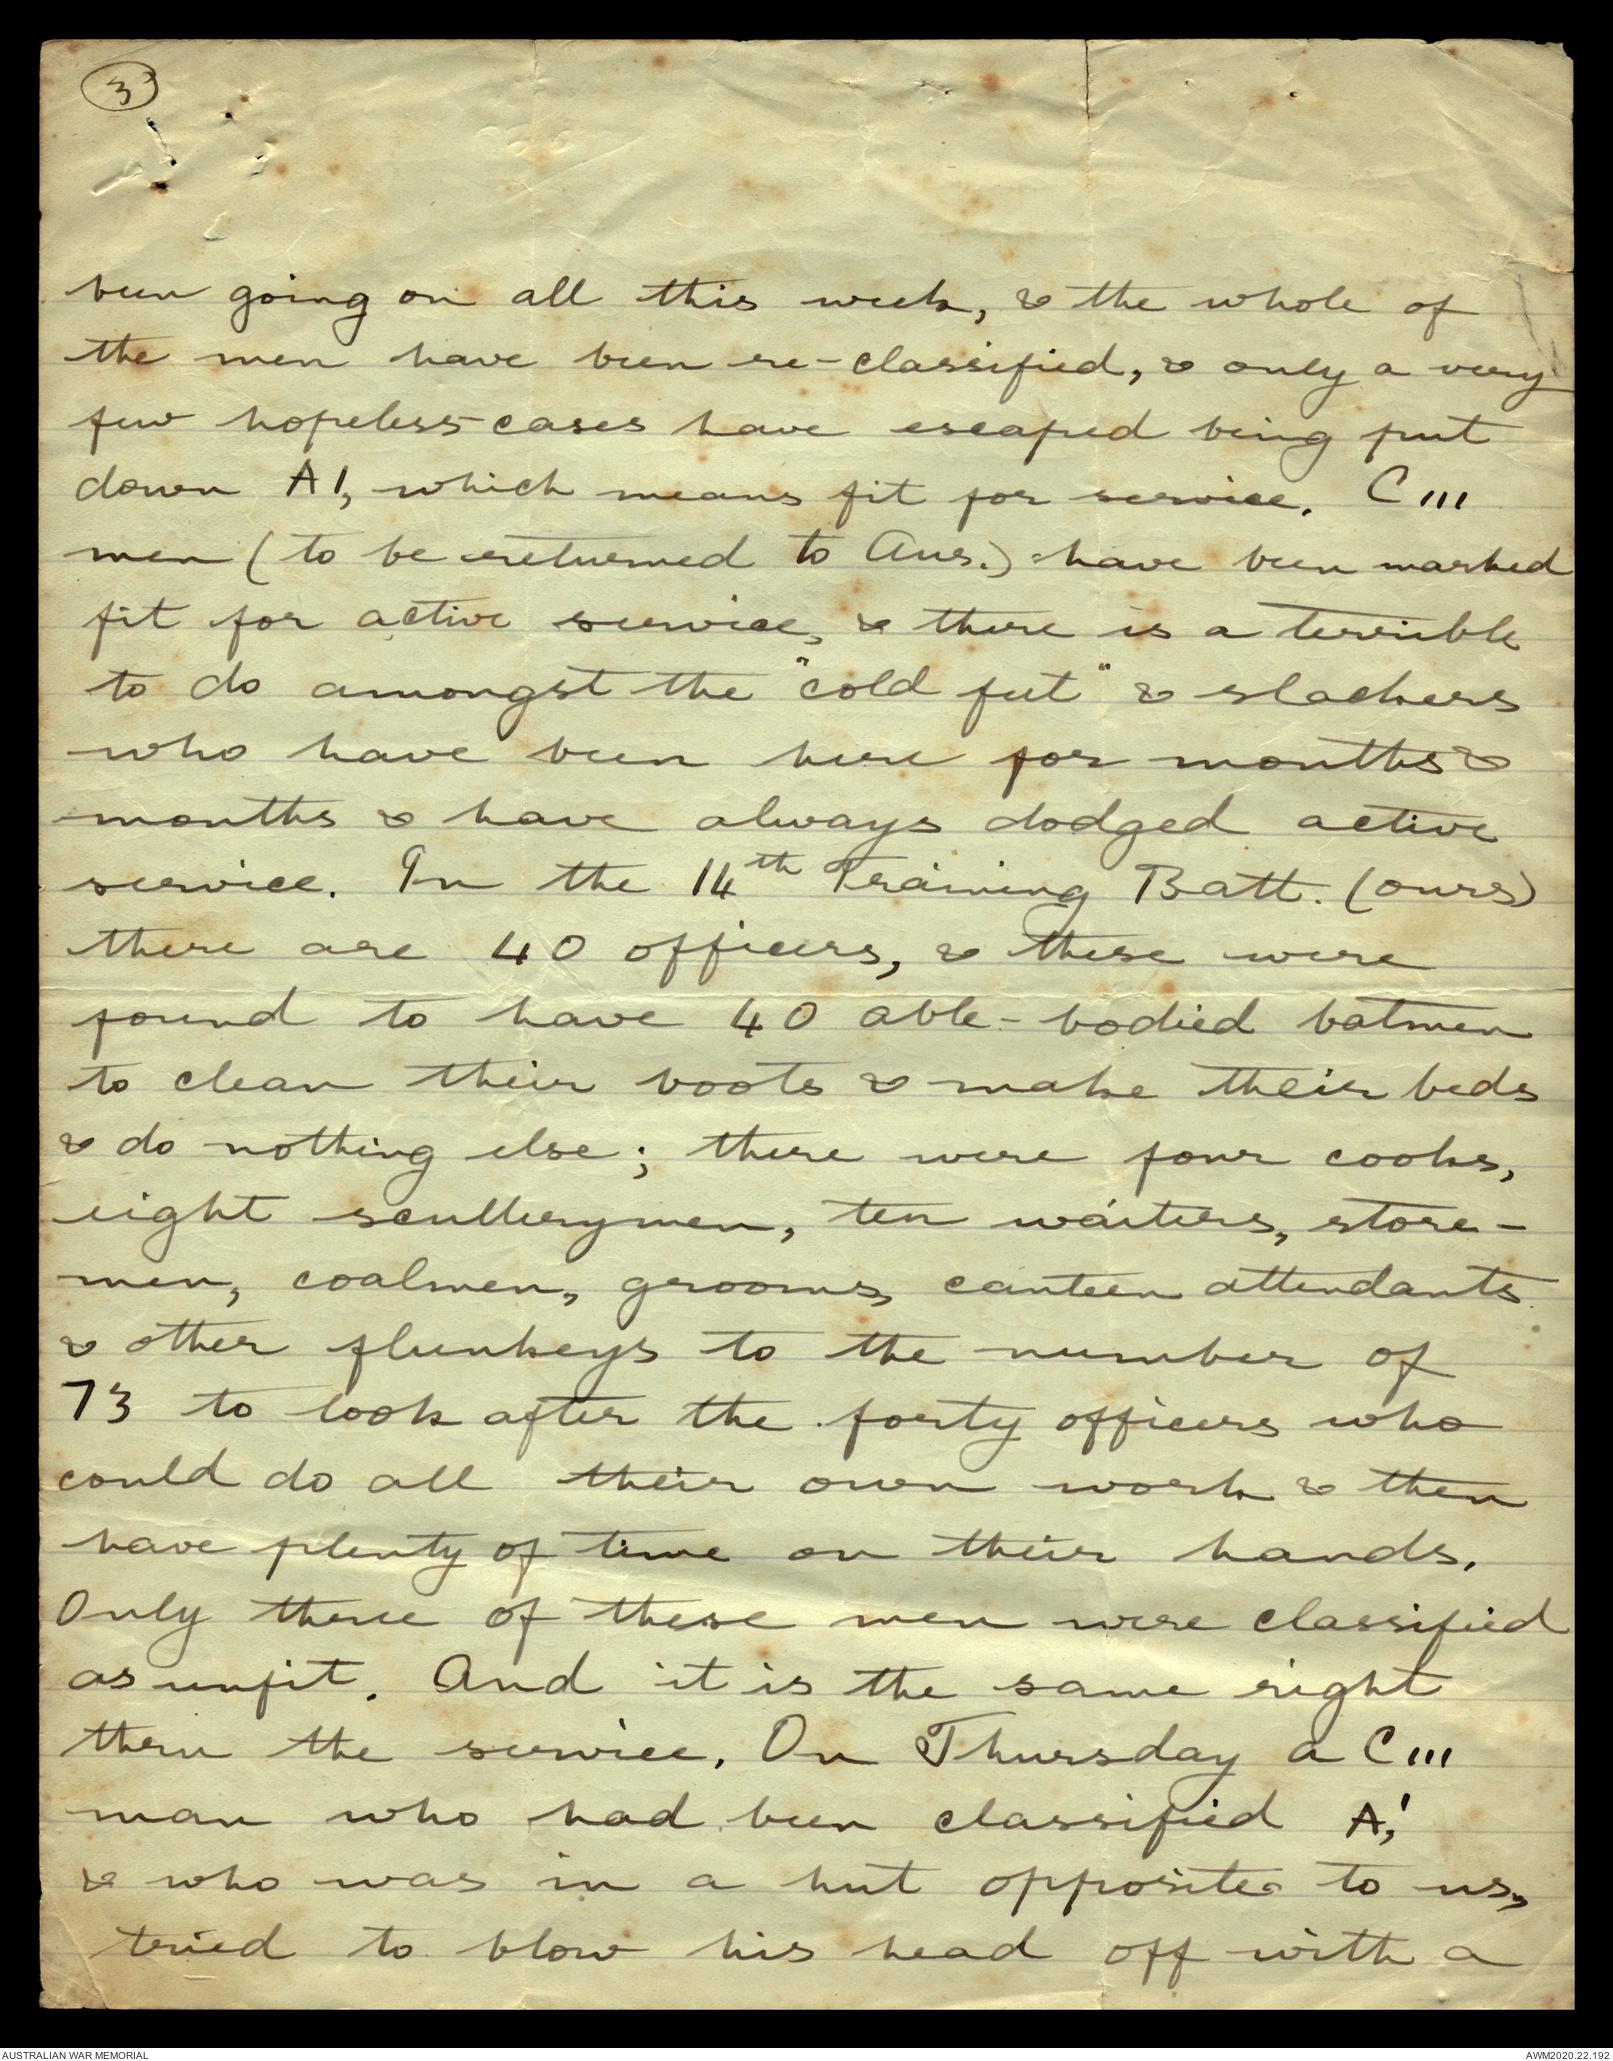 3
been going on all this week, & the whole of
the men have been re-classified, & only a very
few hopeless cases have escaped being put
down A1, which means fit for service. C111
men (to be returned to Aus.) have been marked
fit for active service, & there is a terrible
to do amongst the "cold feet" & slackers
who have been here for months &
months & have always dodged active
service. In the 14th Training Batt. (ours)
there are 40 officers, & these were
found to have 40 able-bodied batmen
to clean their boots & make their beds
& do nothing else; there were four cooks,
eight scullerymen, ten waiters, store-
men, coalmen, grooms, canteen attendants
& other flunkeys to the number of
73 to look after the forty officers who
could do all their own work & then
have plenty of time on their hands.
Only three of these men were classified
as unfit. And it is the same right
thru the service. On Thursday a C111
man who had been classified A1,
& who was in a hut opposite to us,
tried to blow his head off with a
AUSTRALIAN WAR MEMORIAL
AWM2020.22.192